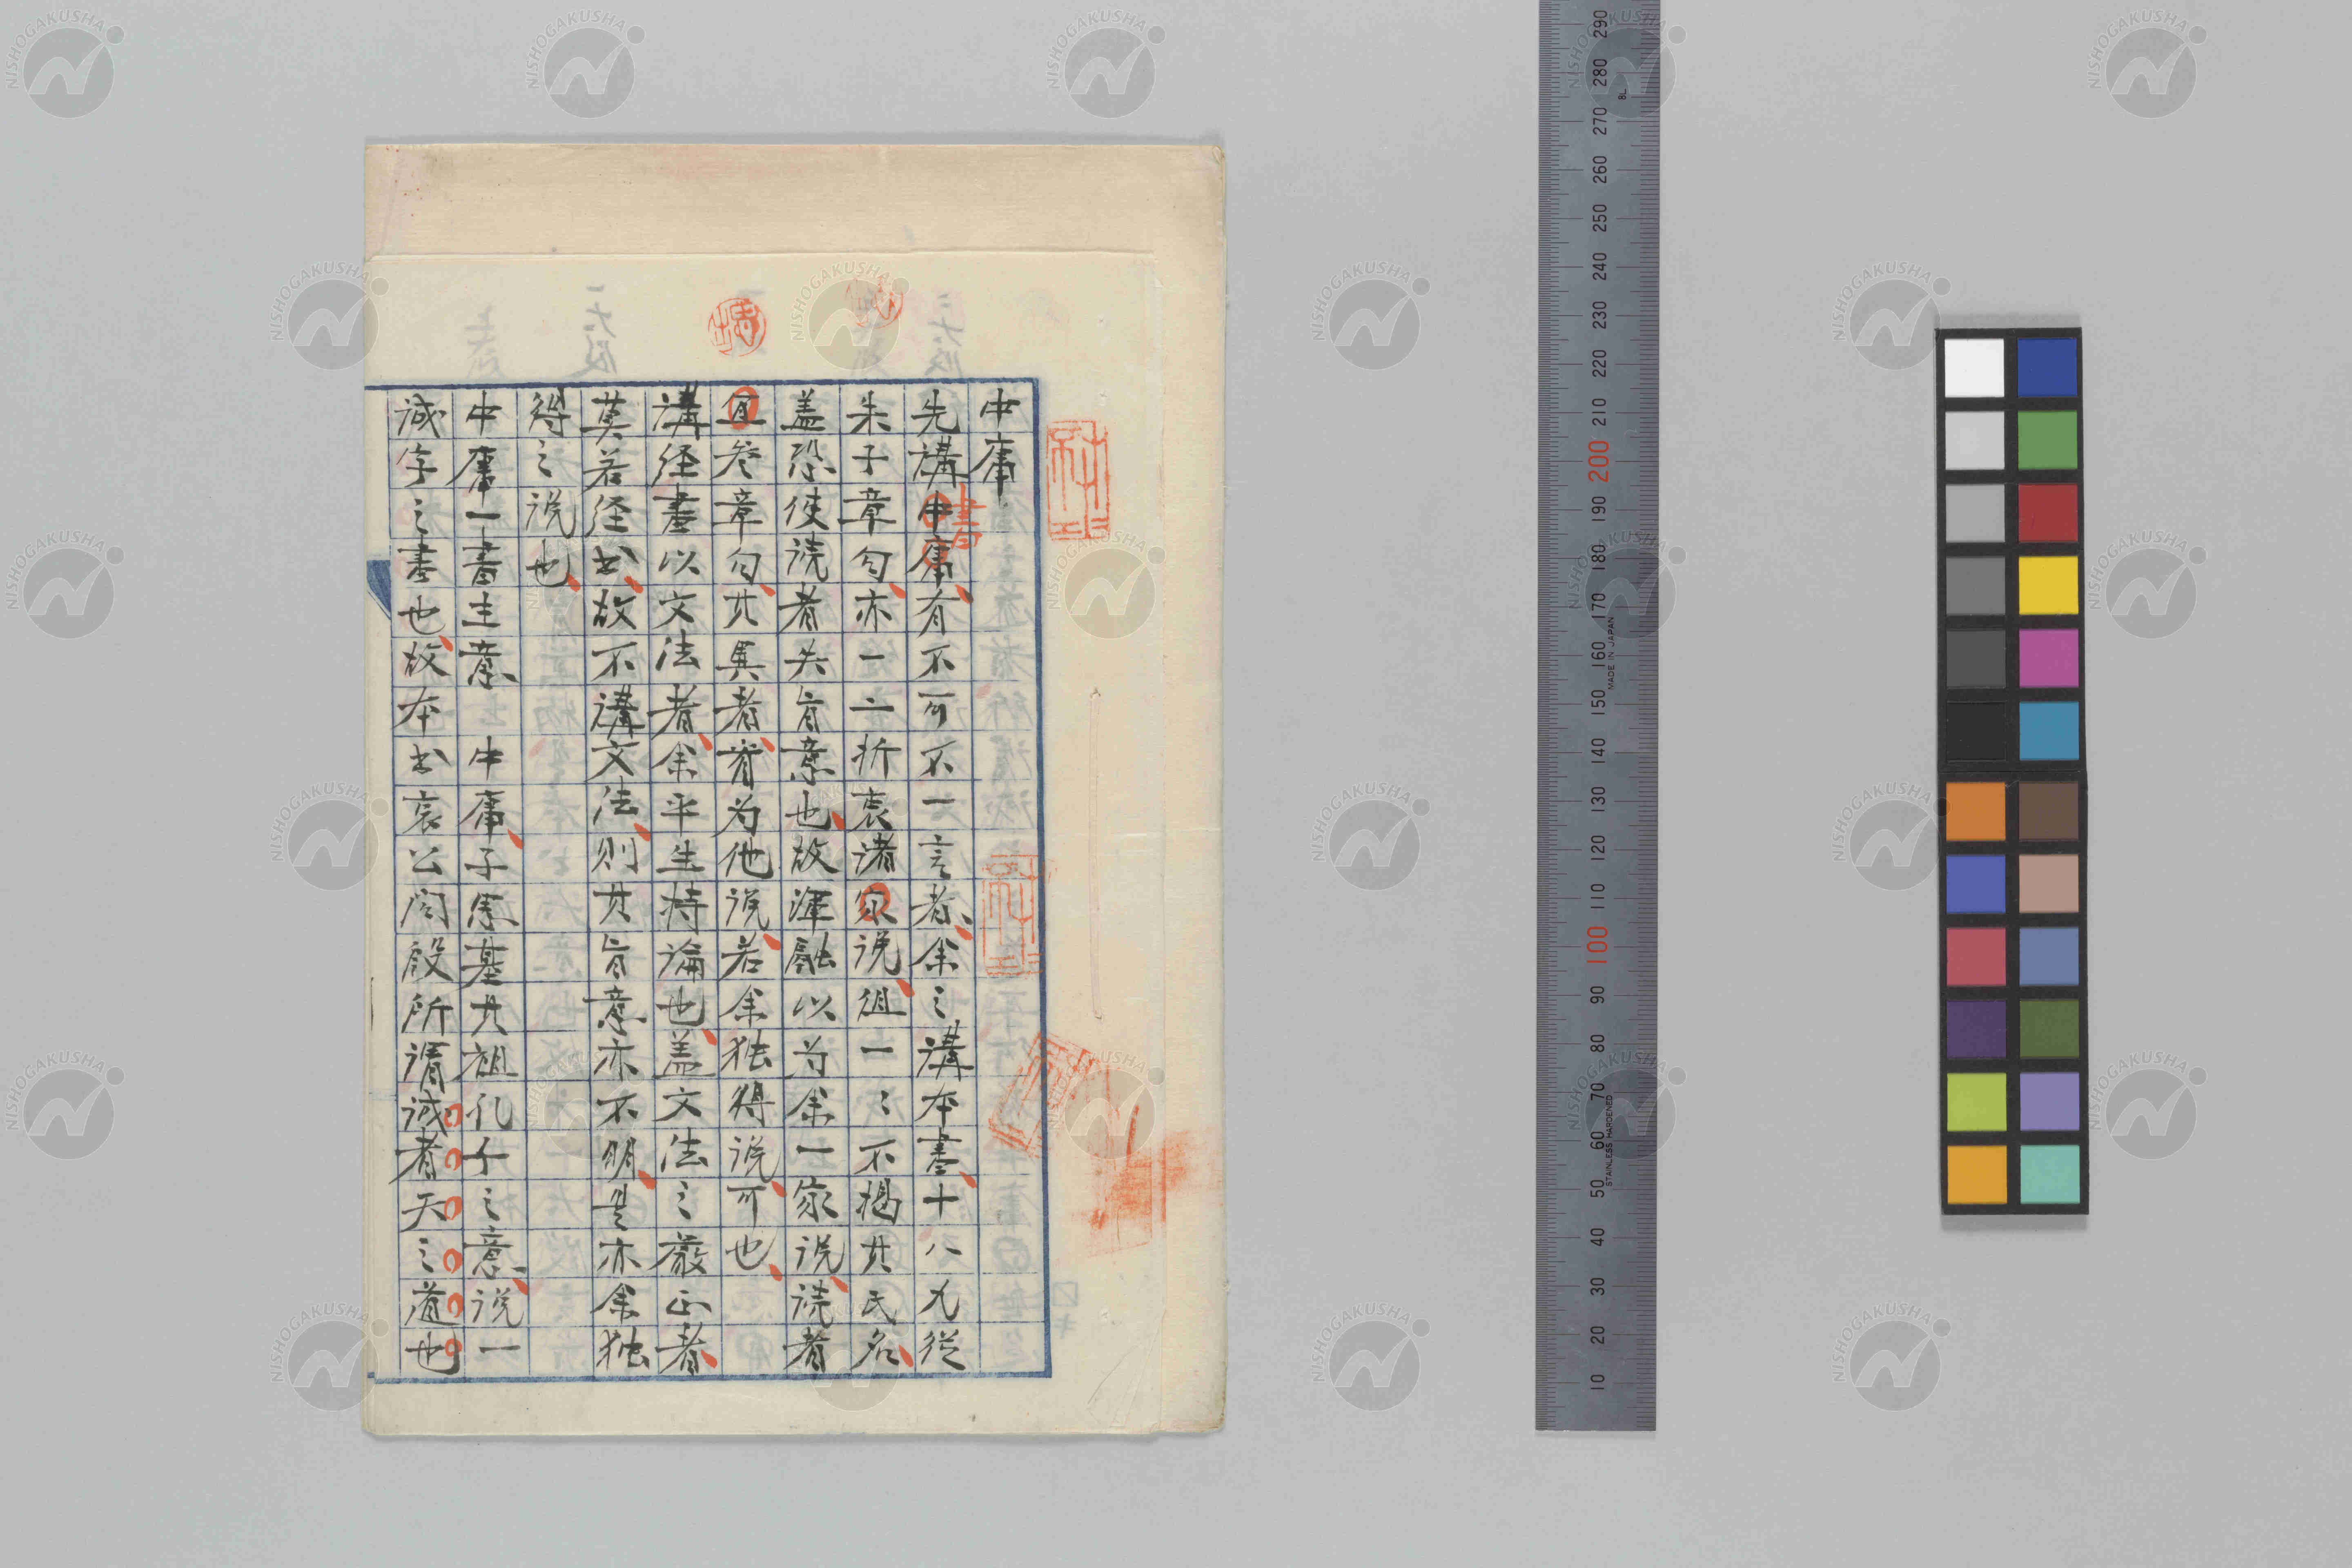 中庸
先講中庸有不可不一言者余之講本書十八九從
書
朱子章句亦一二折衷諸家说徂一〻不揭其氏名
盖恐使读者失旨意也故渾融以为余一家说读者
宜参章句其異者皆为他说若余独得说可也
講経書以文法者余平生持論也盖文法之厳正者
莫若経书故不講文法則其旨意亦不明是亦余独
得之说也
中庸一書主意 中庸子思基其祖孔子之意说一
誠字之書也故本书哀公问段所谓誠者天之道也
290
280
270
260
250
240
230
220
210
200
190
180
170
160
150
140
130
120
110
100
90
80
70
60
50
40
30
20
10
MADE IN JAPAN
STAINLESS HARDENED
NISHOGAKUSHA